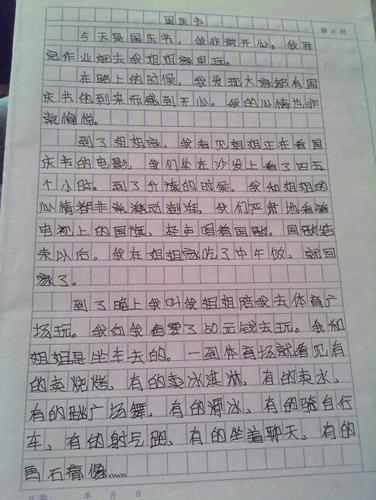 国庆节
今天是国庆节，我非常开心。我写
完作业就去我姐姐家里玩。
在路上的时候，我发现大家都有国
庆节的到来而感到开心。我的心情也非
常愉悦。
到了姐姐家，我看见姐姐正在看国
庆节的电影，我们坐在沙发上看了四五
个小时。到了升旗的时候，我和姐姐的
心情都非常激动澎湃。我们严肃地看着
电视上的国旗，轻声唱着国歌。国歌结
束以后。我在姐姐家吃了中午饭，就回
家了。
到了晚上我叫我姐姐陪我去体育广
场玩。我向我爸要了50元钱去玩。我和
姐姐是坐车去的。一到体育场就看见有
的卖烧烤，有的卖冰淇淋，有的卖水，
有的跳广场舞，有的滑冰，有的骑自行
车，有的射气球，有的坐着聊天，有的
画石膏像……
年 月 日